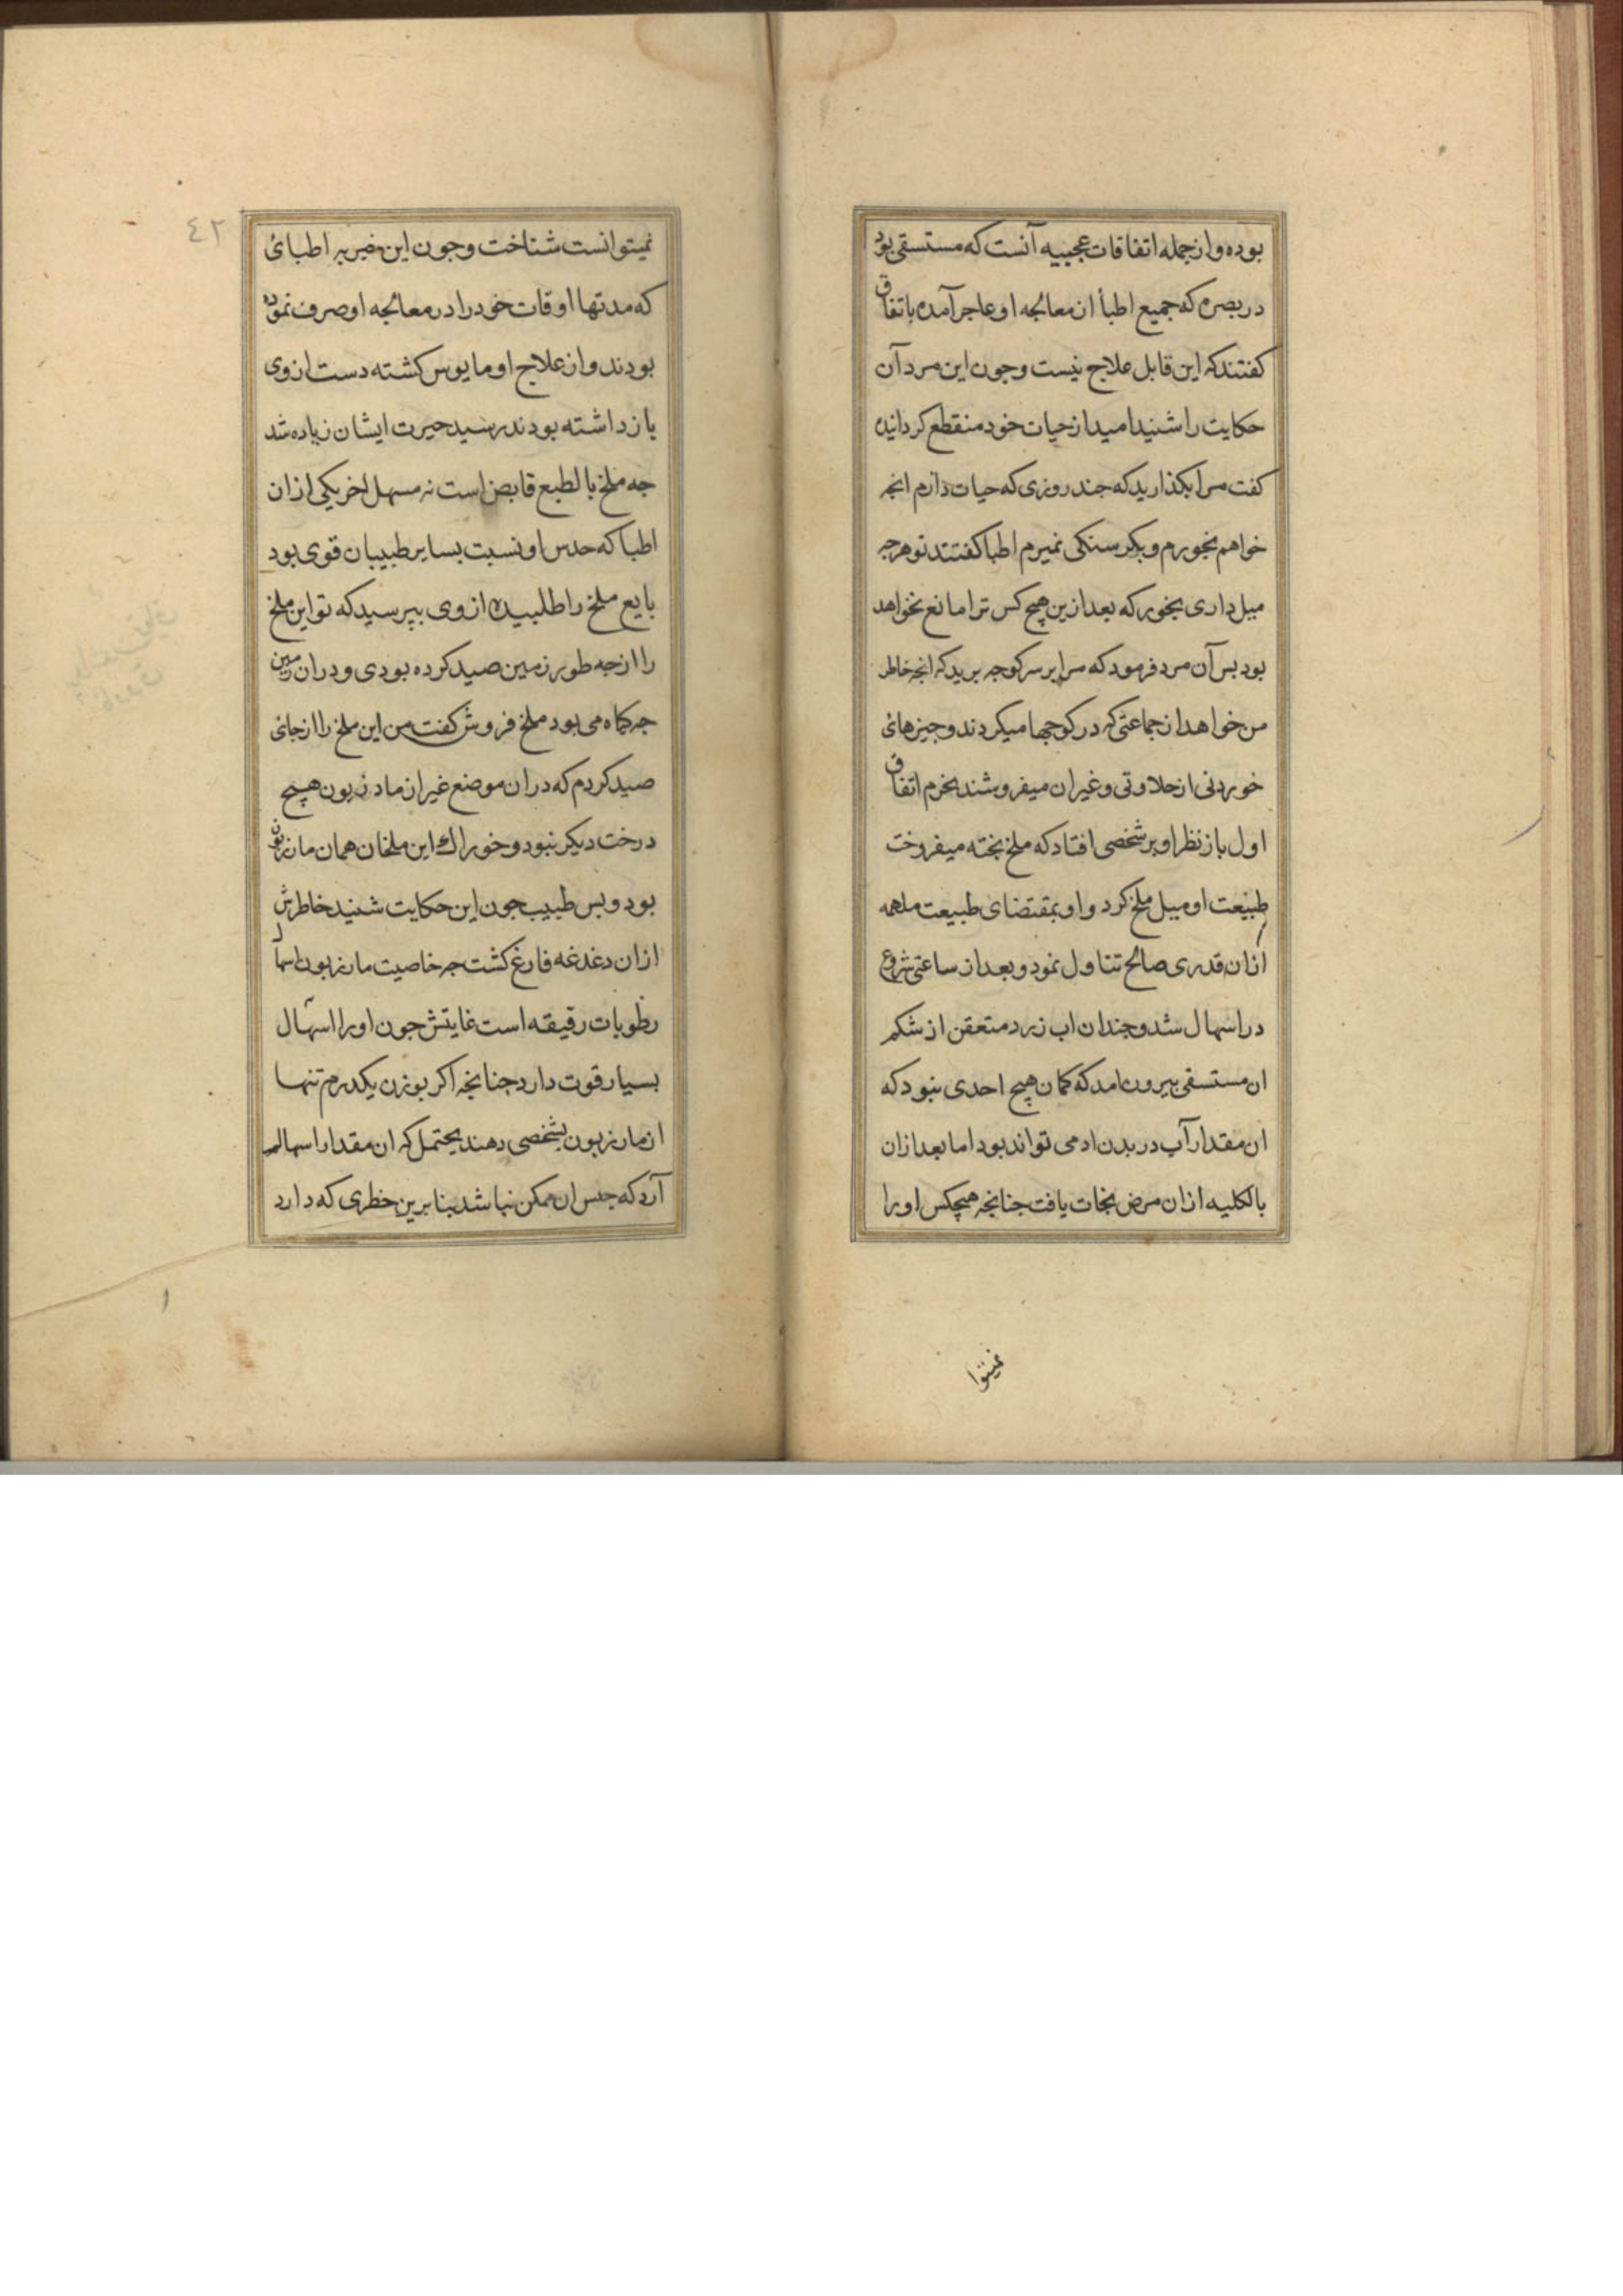 بوده و از جمله اتفاقات عجیبه آنست که مستسقی بود
در بصره که جمیع اطبأ از معالجه او عاجز آمده باتفاق
کفتند که این قابل علاج نیست و جون این مرد آن
حکایت را شنید امید از حیات خود منقطع کردانیده
کفت مرا بکذارید که جند روزی که حیات دارم انجه
خواهم بخورم و بکرسنکی نمیرم اطبا کفتند تو هرجه
میل داری بخور که بعد ازین هیچ کس ترا مانع نخواهد
بود بس آن مرد فرمود که مرا بر سر کوجه برید که انجه خاطر
من خواهد از جماعتی که در کوجها میکردند و جیزهائ
خوردنی از حلاوتی و غیر ان میفروشند بخرم اتفاق
اول بار نظر او بر شخصی افتاد که ملخ بخته میفروخت
طبیعت او میل ملخ کرد و او بمقتضای طبیعت ملهمه
ازان قدری صالح تناول نمود و بعد از ساعتی شروع
در اسهال شد و جندان اب زرد متعفن از شکم
ان مستسقی بیرون امد که کمان هیچ احدی نبود که
ان مقدار آب در بدن ادمی تواند بود اما بعد ازان
بالکلیه ازان مرض نجات یافت جنانجه هیچکس او را
نمیتوا
٤٢
نمیتوانست شناخت و جون این خبر به اطبائ
که مدتها اوقات خود را در معالجه او صرف نموده
بودند و از علاج او مایوس کشته دست از وی
باز داشته بودند رسید حیرت ایشان زیاده شد
جه ملخ بالطبع قابض است نه مسهل اخر یکی ازان
اطبا که حدس او نسبت بسایر طبیبان قوی بود
بایع ملخ را طلبیده از وی ببرسید که تو این ملخ
را از جه طور زمین صید کرده بودی و دران زمین
جه کیاه می بود ملخ فروش کفت من این ملخ را از جائ
صید کردم که دران موضع غیر از مازریون هیچ
درخت دیکر نبود و خوراک این ملخان همان مازریون
بود و بس طبیب جون این حکایت شنید خاطرش
ازان دغدغه فارغ کشت جه خاصیت مازریون اسهال
رطوبات رقیقه است غایتش جون او را اسهال
بسیار قوت دارد جنانجه اکر بوزن یکدرم تنها
از مازریون بشخصی دهند یحتمل که ان مقدار اسهال
آرد که حبس ان ممکن نباشد بنابرین خطری که دارد